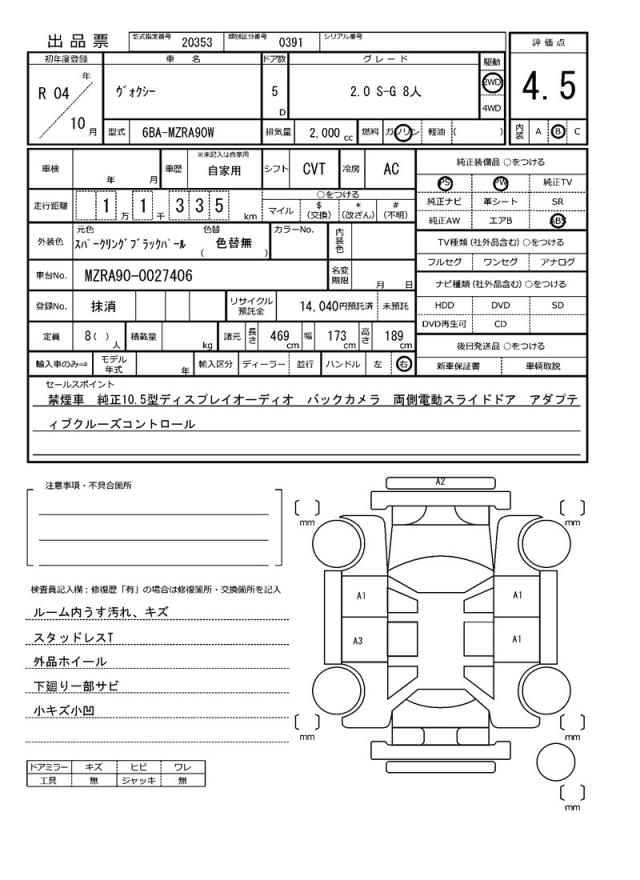 出品票 型式指定番号 20353 類別区分番号 0391 シリアル番号
初年度登録 車名 ドア数 グレード 駆動 評価点
R 04 年 10 月 ヴォクシー 5 D 2.0 S-G 8人 2WD 4WD 4.5
型式 6BA-MZRA90W 排気量 2,000 cc 燃料 ガソリン 軽油 ( ) 内装 A B C
車検 年 月 車歴 ※未記入は自家用 自家用 シフト CVT 冷房 AC 純正装備品 ○をつける
PS PW 純正TV
走行距離 1 万 1 千 3 3 5 km ○をつける 純正ナビ 革シート SR
マイル $ (交換) * (改ざん) # (不明) 純正AW エアB ABS
外装色 元色 スパークリングブラックパール 色替 ( 色替無 ) カラーNo. 内装色 TV種類 (社外品含む) ○をつける
フルセグ ワンセグ アナログ
車台No. MZRA90-0027406 名変期限 月 日 ナビ種類 (社外品含む) ○をつける
登録No. 抹消 リサイクル預託金 14,040円預託済 未預託 HDD DVD SD
DVD再生可 CD
定員 8( ) 人 積載量 kg 諸元 長さ 469 cm 幅 173 cm 高さ 189 cm 後日発送品 ○をつける
輸入車のみ⇨ モデル年式 年 輸入区分 ディーラー 並行 ハンドル 左 右 新車保証書 車輌取説
セールスポイント
禁煙車 純正10.5型ディスプレイオーディオ バックカメラ 両側電動スライドドア アダプテ
ィブクルーズコントロール
注意事項・不具合箇所
検査員記入欄：修復歴「有」の場合は修復箇所・交換箇所を記入
ルーム内うす汚れ、キズ
スタッドレスT
外品ホイール
下廻り一部サビ
小キズ小凹
ドアミラー キズ ヒビ ワレ
工具 無 ジャッキ 無
A2
mm mm
A1 A1
A3 A1
mm mm
mm